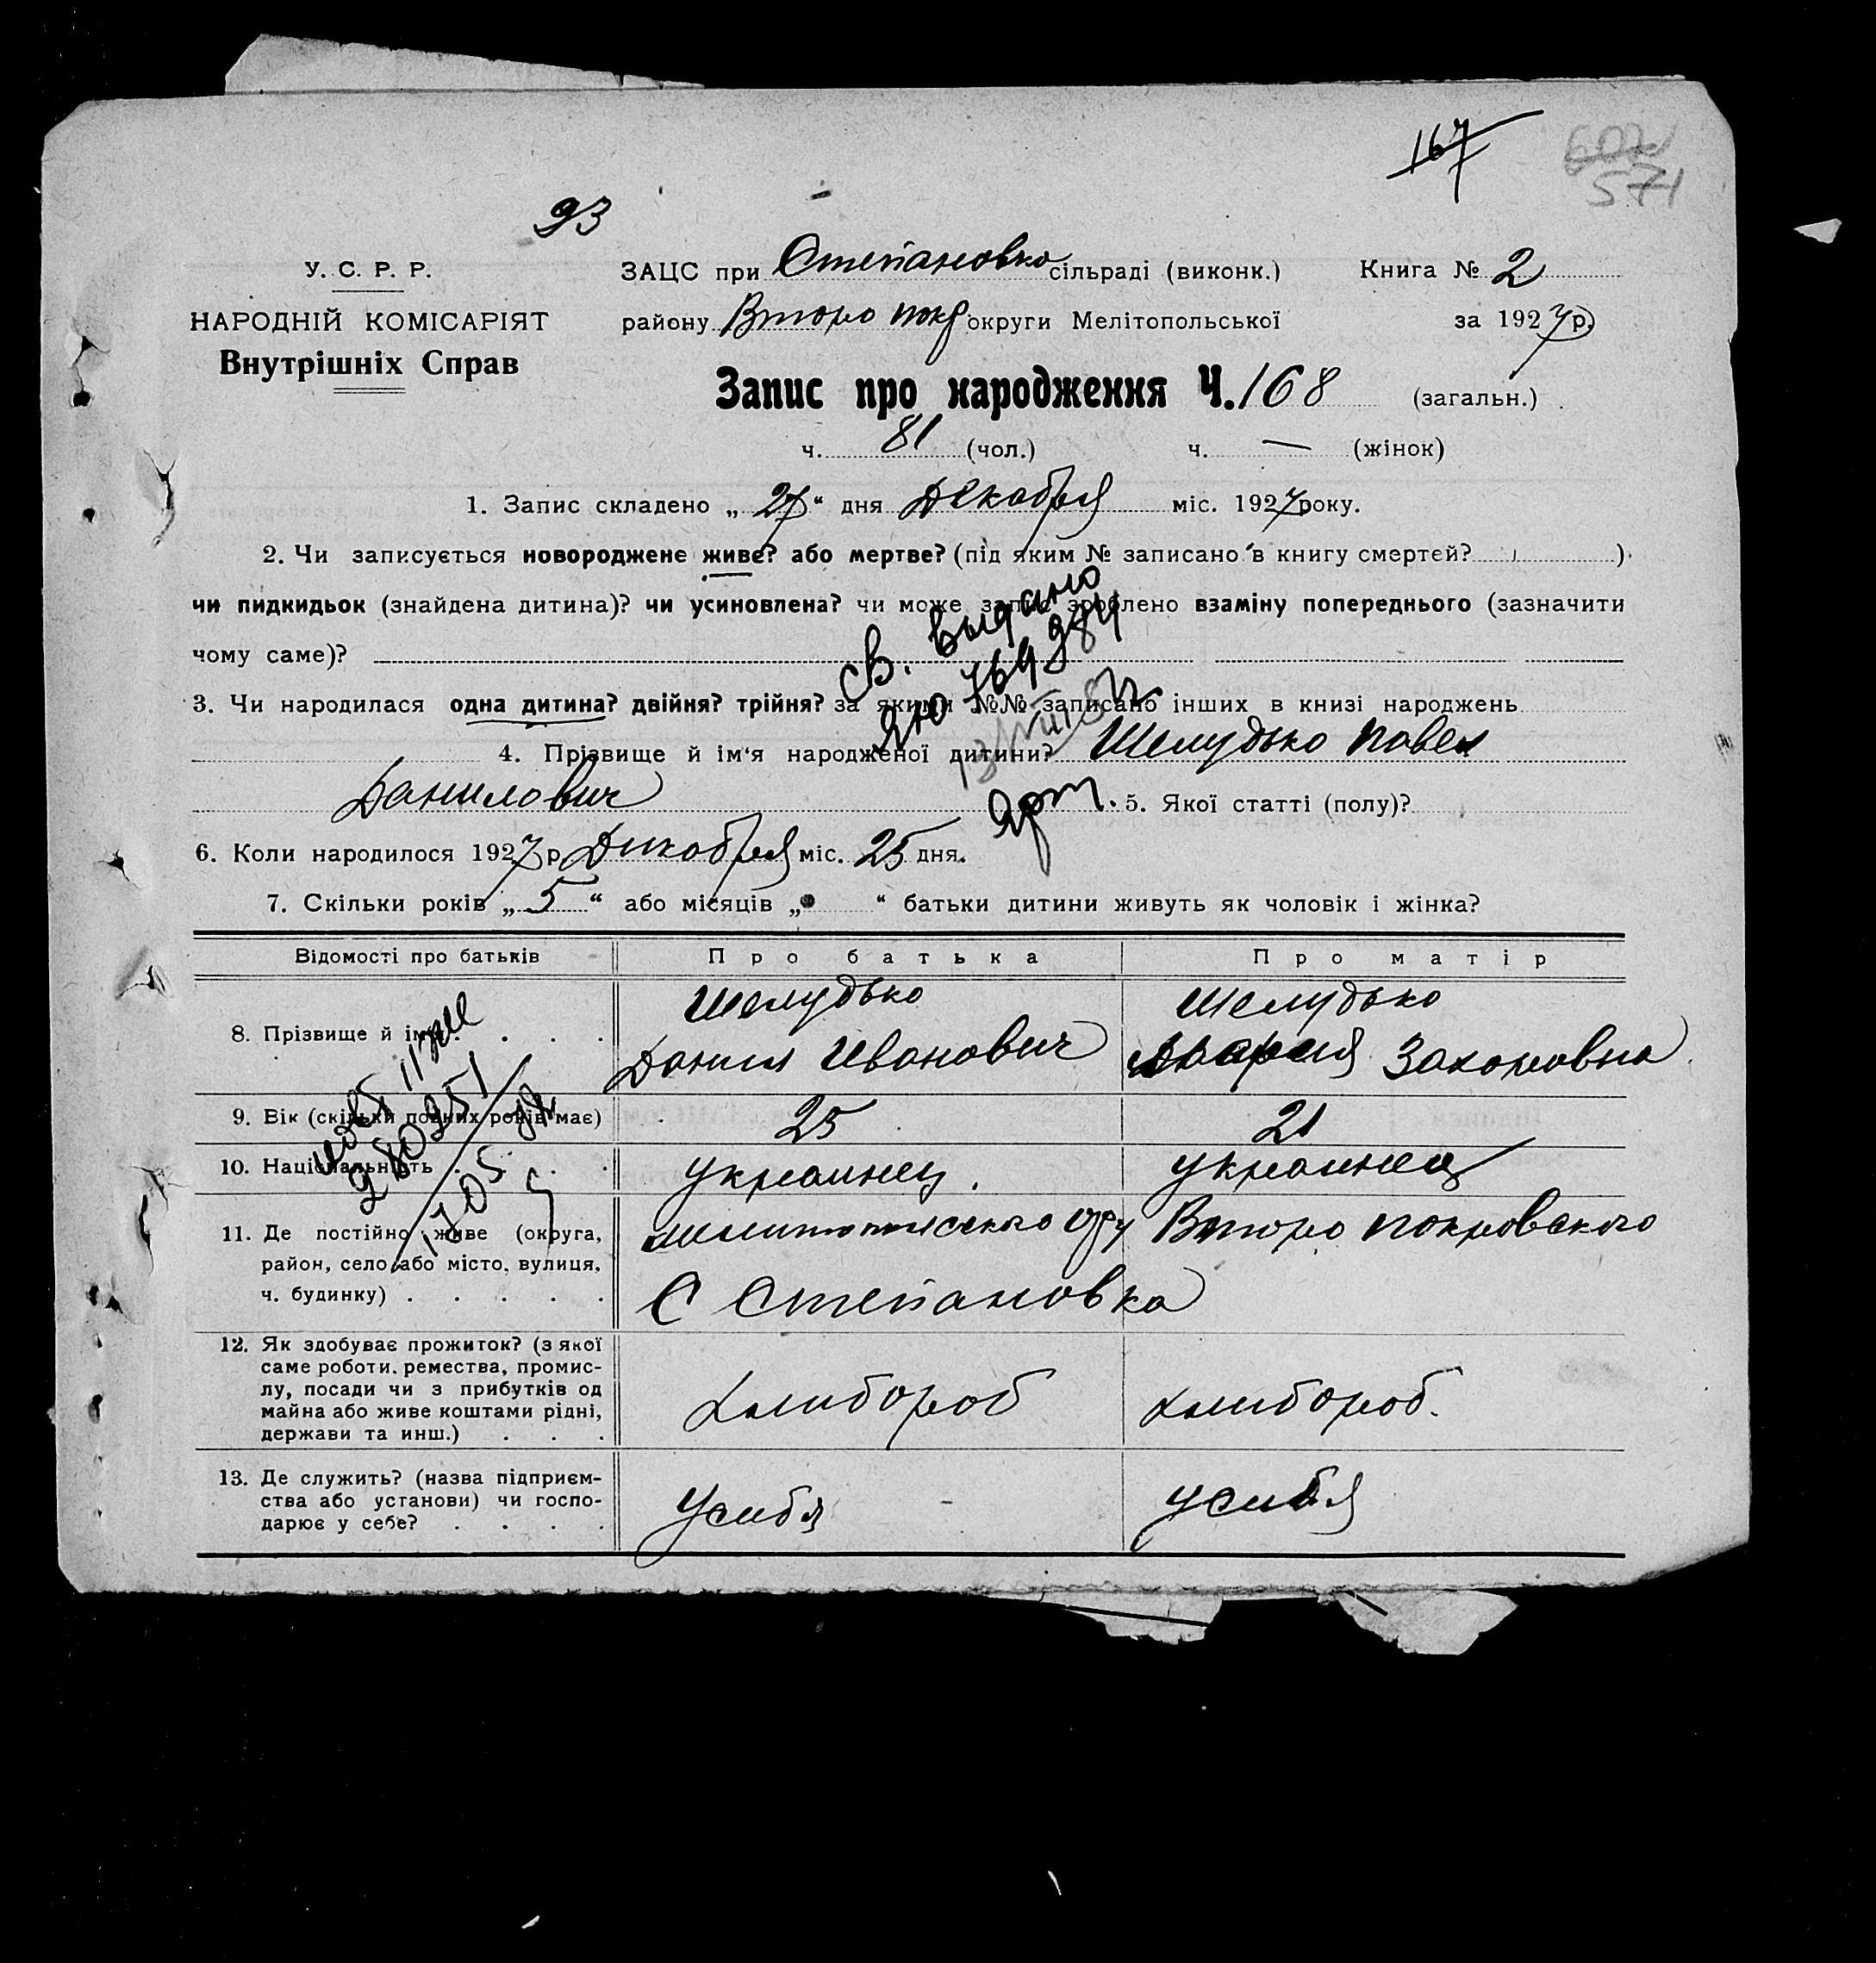 167
602
571
93
У. С. Р. Р.
НАРОДНІЙ КОМІСАРІЯТ
Внутрішніх Справ
ЗАЦС при Степановко сільраді (виконк.) Книга № 2
району Второ покр округи Мелітопольської за 1927 р.
Запис про народження Ч. 168 (загальн.)
ч. 81 (чол.) ч. — (жінок)
1. Запис складено „ 27 “ дня Декабря міс. 1927 року.
2. Чи записується новороджене живе? або мертве? (під яким № записано в книгу смертей? )
чи пидкидьок (знайдена дитина)? чи усиновлена? чи може запис зроблено взаміну попереднього (зазначити
чому саме)?
св. выдано
3. Чи народилася одна дитина? двійня? трійня? за якими №№ записано інших в книзі народжень
4. Прізвище й ім‘я народженої дитини? Шелудько Павел
Данилович 5. Якої статті (полу)?
6. Коли народилося 1927 р. Дикабря міс. 25 дня.
7. Скільки років „ 5 “ або місяців „ “ батьки дитини живуть як чоловік і жінка?
Відомості про батьків Про батька Про матір
8. Прізвище й ім‘я . . . . Шелудько Шелудько
Данил Иванович Мария Захаровна
9. Вік (скільки повних років має) 25 21
10. Національність . . . . украинец. украинец
11. Де постійно живе (округа, район, село або місто, вулиця, ч. будинку) . . . . . Мелитопольского окру Второ Покровского
С Степановка
12. Як здобуває прожиток? (з якої саме роботи. ремества, промислу, посади чи з прибутків од майна або живе коштами рідні, держави та инш.) . . . Хлибороб хлибороб.
13. Де служить? (назва підприємства або установи) чи господарює у себе? . . . . Усибя усибя